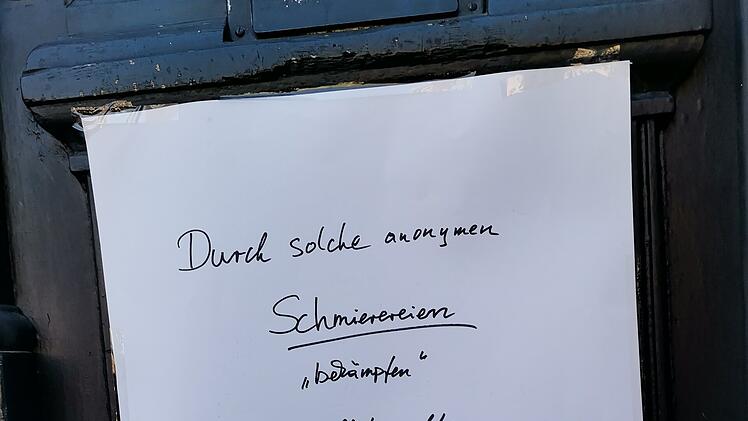 Durch solche anonymen
Schmierereien
„bekämpfen“